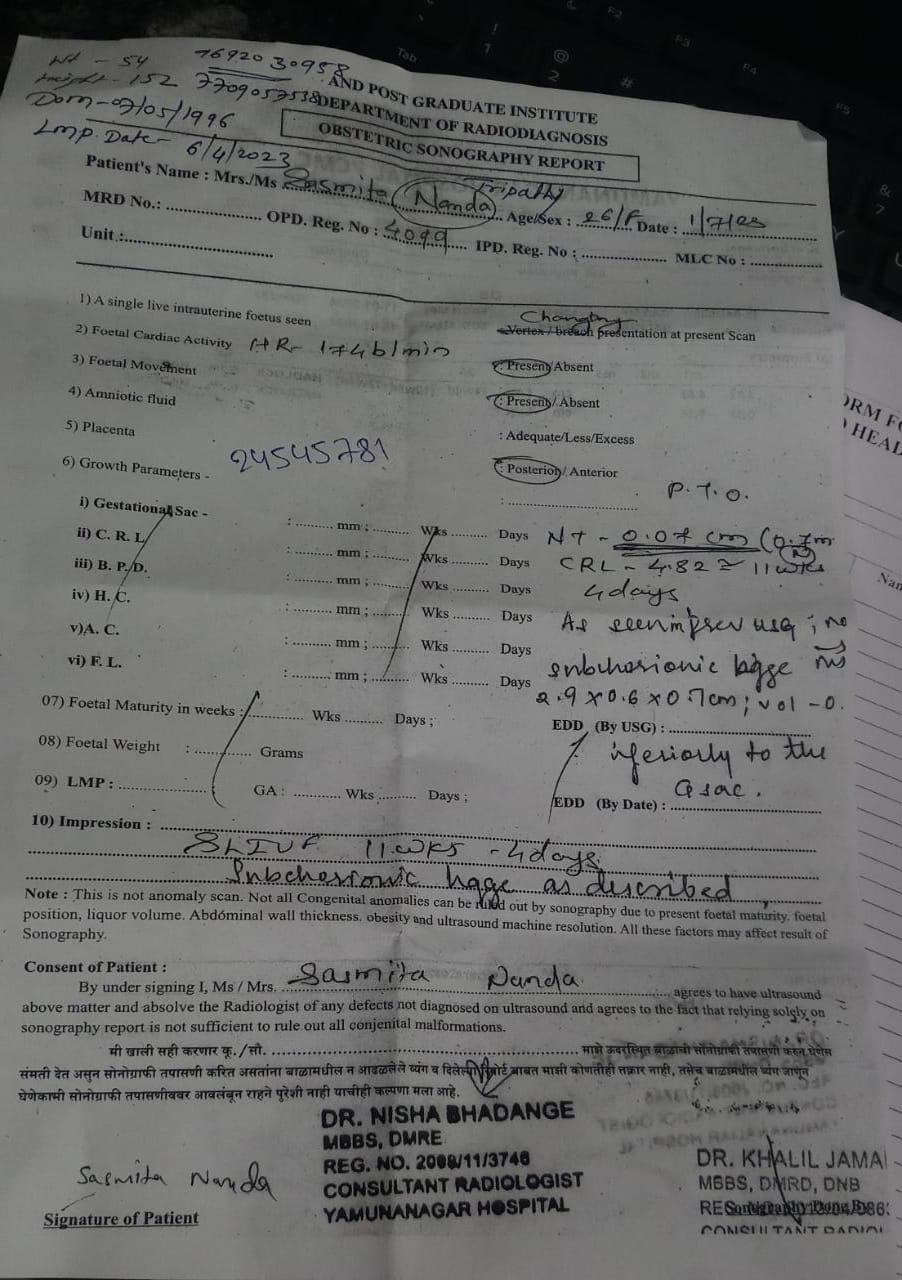 Wt - 54 76920 30958
Height - 152 7709057538
AND POST GRADUATE INSTITUTE
DEPARTMENT OF RADIODIAGNOSIS
OBSTETRIC SONOGRAPHY REPORT
07/05/1996
Lmp. Date - 6/4/2023
Tripathy
Patient's Name : Mrs./Ms Sasmita Nanda Age/Sex : 26/F Date : 1/7/23
MRD No.: .................. OPD. Reg. No : 4099 IPD. Reg. No : .................. MLC No : ..................
Unit :..............................
1) A single live intrauterine foetus seen Vertex / breach presentation at present Scan
2) Foetal Cardiac Activity HR- 174 b/min : Present/Absent
3) Foetal Movement : Present/ Absent
4) Amniotic fluid : Adequate/Less/Excess
5) Placenta : Posterior/ Anterior
24545781
6) Growth Parameters - : ..............................
P.T.O.
i) Gestational Sac - : .......... mm ; .......... Wks .......... Days NT - 0.07 cm
ii) C. R. L. : .......... mm ; .......... Wks .......... Days CRL - 4.82 ≈ 11 wks
iii) B. P. D. : .......... mm ; .......... Wks .......... Days 4 days
iv) H. C. : .......... mm ; .......... Wks .......... Days As seen in prev usg ; no
v)A. C. : .......... mm ; .......... Wks .......... Days subchorionic hgge
vi) F. L. : .......... mm ; .......... Wks .......... Days 2.9 x 0.6 x 0.7cm ; vol - 0.
07) Foetal Maturity in weeks : .......... Wks .......... Days ; EDD (By USG) : ..............................
08) Foetal Weight : .......... Grams inferiorly to the
G sac.
09) LMP : .................... GA : .......... Wks .......... Days ; EDD (By Date) : ..............................
10) Impression :
SLIUF 11 wks - 4 days
Subchorionic hgge as described
Note : This is not anomaly scan. Not all Congenital anomalies can be ruled out by sonography due to present foetal maturity, foetal
position, liquor volume. Abdóminal wall thickness. obesity and ultrasound machine resolution. All these factors may affect result of
Sonography.
Consent of Patient :
By under signing I, Ms / Mrs. Sasmita Nanda agrees to have ultrasound
above matter and absolve the Radiologist of any defects not diagnosed on ultrasound and agrees to the fact that relying solely on
sonography report is not sufficient to rule out all conjenital malformations.
मी खाली सही करणार कू./सौ. .............................. माझे उदरस्थित बाळाची सोनोग्राफी तपासणी करुन घेणेस
संमती देत असुन सोनोग्राफी तपासणी करित असतांना बाळामधील न आढळलेले व्यंग व दिलेल्या रिपोर्ट बाबत माझी कोणतीही तक्रार नाही, तसेच बाळामधील व्यंग जाणून
घेणेकामी सोनोग्राफी तपासणीवर अवलंबून राहने पुरेशी नाही याचीही कल्पना मला आहे.
DR. NISHA BHADANGE
MBBS, DMRE
REG. NO. 2009/11/3746
CONSULTANT RADIOLOGIST
YAMUNANAGAR HOSPITAL
DR. KHALIL JAMA
MBBS, DMRD, DNB
CONSULTANT RADIOL
Sasmita Nanda
Signature of Patient
ORM F
HEAD
Nan